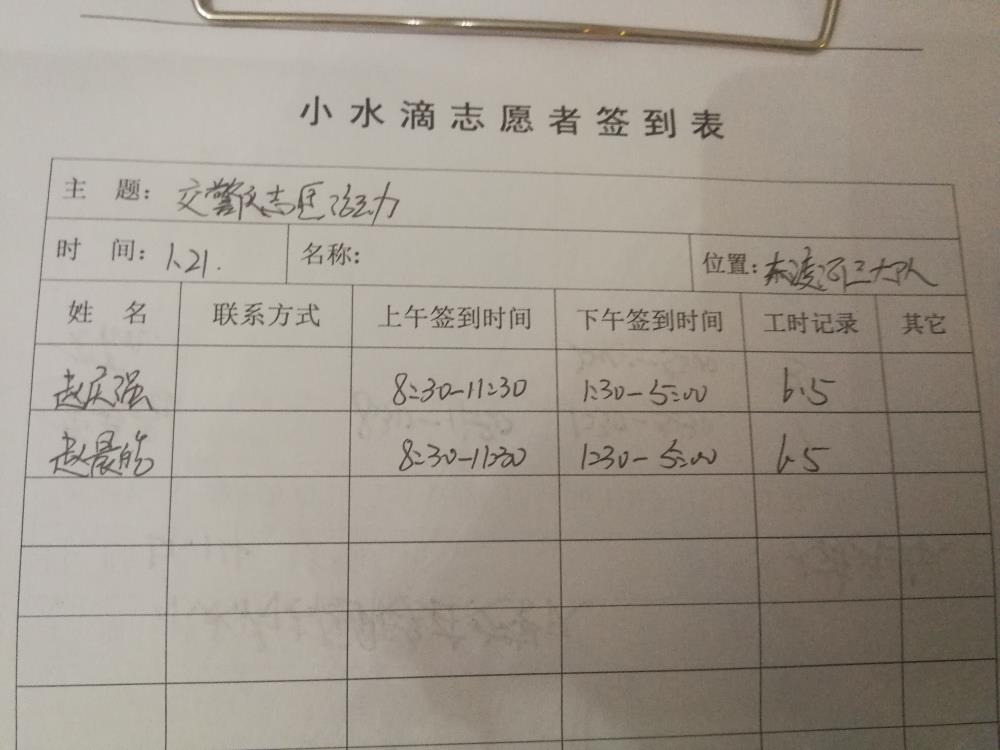 小水滴志愿者签到表
主 题: 交警志愿活动
时 间: 1.21. 名称: 位置: 东凌河三大队
姓 名 联系方式 上午签到时间 下午签到时间 工时记录 其它
赵庆强 8:30-11:30 1:30-5:00 6.5
赵晨皓 8:30-11:30 1:30-5:00 6.5